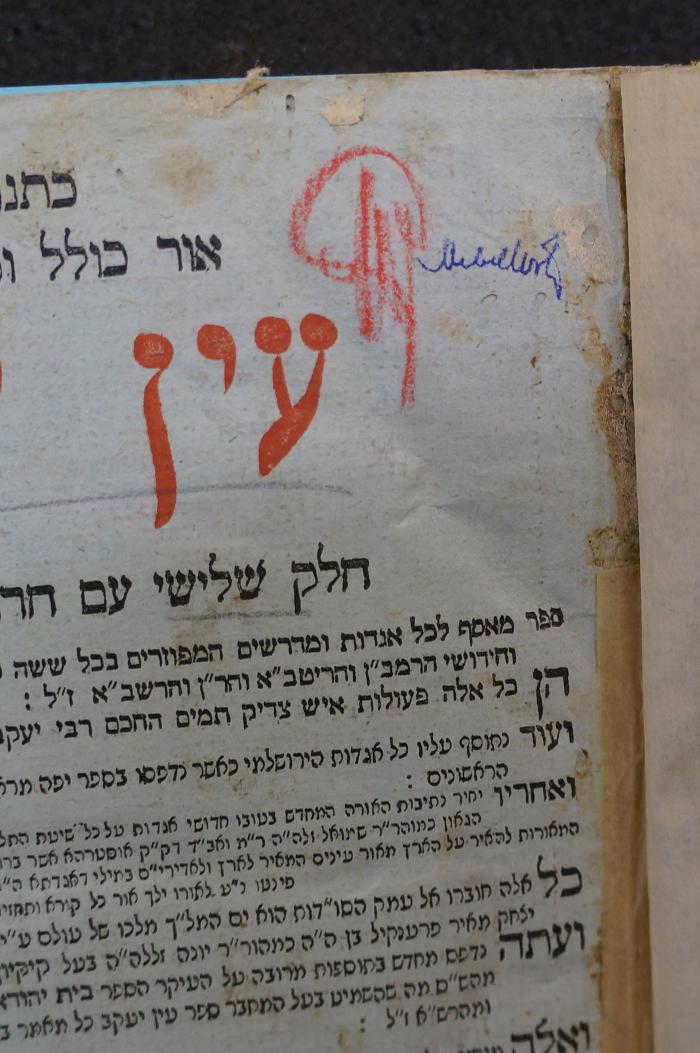 כתנ
אור כולל ו
עין
חלק שלישי עם חד
ספר מאסף לכל אגדות ומדרשים המפוזרים בכל ששה
וחידושי הרמב"ן והריטב"א והר"ן והרשב"א ז"ל :
הן כל אלה פעולות איש צדיק תמים החכם רבי יעקב
ועוד נתוסף עליו כל אגדות הירושלמי כאשר נדפסו בספר יפה מרא
הראשונים :
ואחריך יאיר נתיבות האורה המחדש בטובו חדושי אגדות על כל שיטת התל
הגאון כמוהר"ר שמואל זלה"ה ר"מ ואב"ד דק"ק אוסטרהא אשר
המאורות להאיר על הארץ מאור עינים המאיר לארץ ולאדירי"ם במילי דאגדתא
פינטו נ"ע לאורו ילך אור כל קורא
כל אלה חוברו אל עמק הסו"דות הוא ים המל"ך מלכו של עולם ע"י
יצחק מאיר פרענקיל בן ה"ה כמהור"ר יונה זללה"ה בעל קיקיון
ועתה נדפס מחדש בתוספות מרובה על העיקר הספר בית יהודא
מהש"ס מה שהשמיט בעל המחבר ספר עין יעקב כל מאמר
ומהרש"א ז"ל :
ואלה